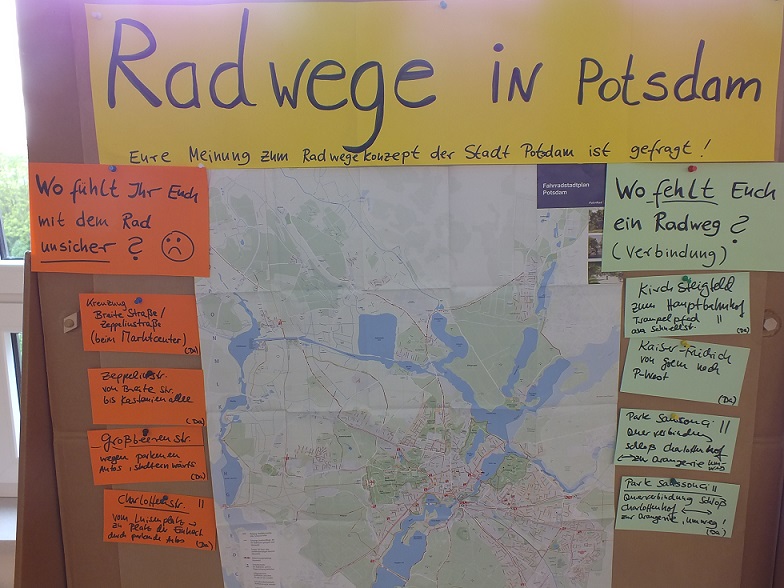 Radwege in Potsdam
Eure Meinung zum Radwegekonzept der Stadt Potsdam ist gefragt!
Wo fühlt Ihr Euch
mit dem Rad
unsicher?
Fahrradstadtplan
Potsdam
Wo fehlt Euch
ein Radweg?
(Verbindung)
Kreuzung
Breite Straße/
Zeppelinstraße
(beim Marktcenter)
(Da)
Zeppelinstr.
von Breite Str.
bis Kastanienallee
(Da)
Großbeerenstr.
wegen parkenden
Autos, stadteinwärts
(Da)
Charlottenstr. !!
vom Luisenplatz
zu Platz der Einheit
durch parkende Autos
(Da)
Kirchsteigfeld
zum Hauptbahnhof
Trampelpfad !!
am Schnellstr.
(Da)
Kaiser-Friedrich
von Golm nach
P-West
(Da)
Park Sanssouci !!
Querverbindung
Schloß Charlottenhof
zu Orangerie
Park Sanssouci !!
Querverbindung Schloß
Charlottenhof
zur Orangerie, Umweg!
(Da)